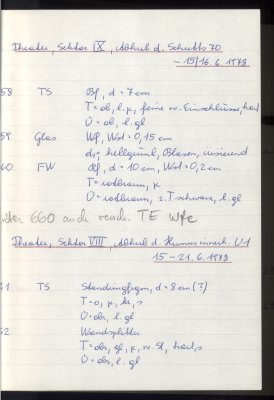 Theater, Sektor IX, Abhub d. Schutts 70
- 15/16.6.1978
58 TS Bf, d = 7cm
T = ob, l, k, feine w. Einschlüsse, hart
Ü = ob, l. gl
59 Glas Wf, Wst = 0,15 cm
ds, hellgrünl, Blasen, irisierend
60 FW Rf, d = 10 cm, Wst = 0,2 cm
T = rotbraun, k
Ü = rotbraun, z. T schwarz, l. gl
unter 660 auch versch. TE Wfe
Theater, Sektor VIII, Abhub d. Humus innerh. U1
15-21.6.1978
61 TS Standringfrgm, d = 8cm (?)
T = o, k, s
Ü = ds, l. gl
62 Wandsplitter
T = ds, gl, k, w. St, hart, s
Ü = ds, l. gl